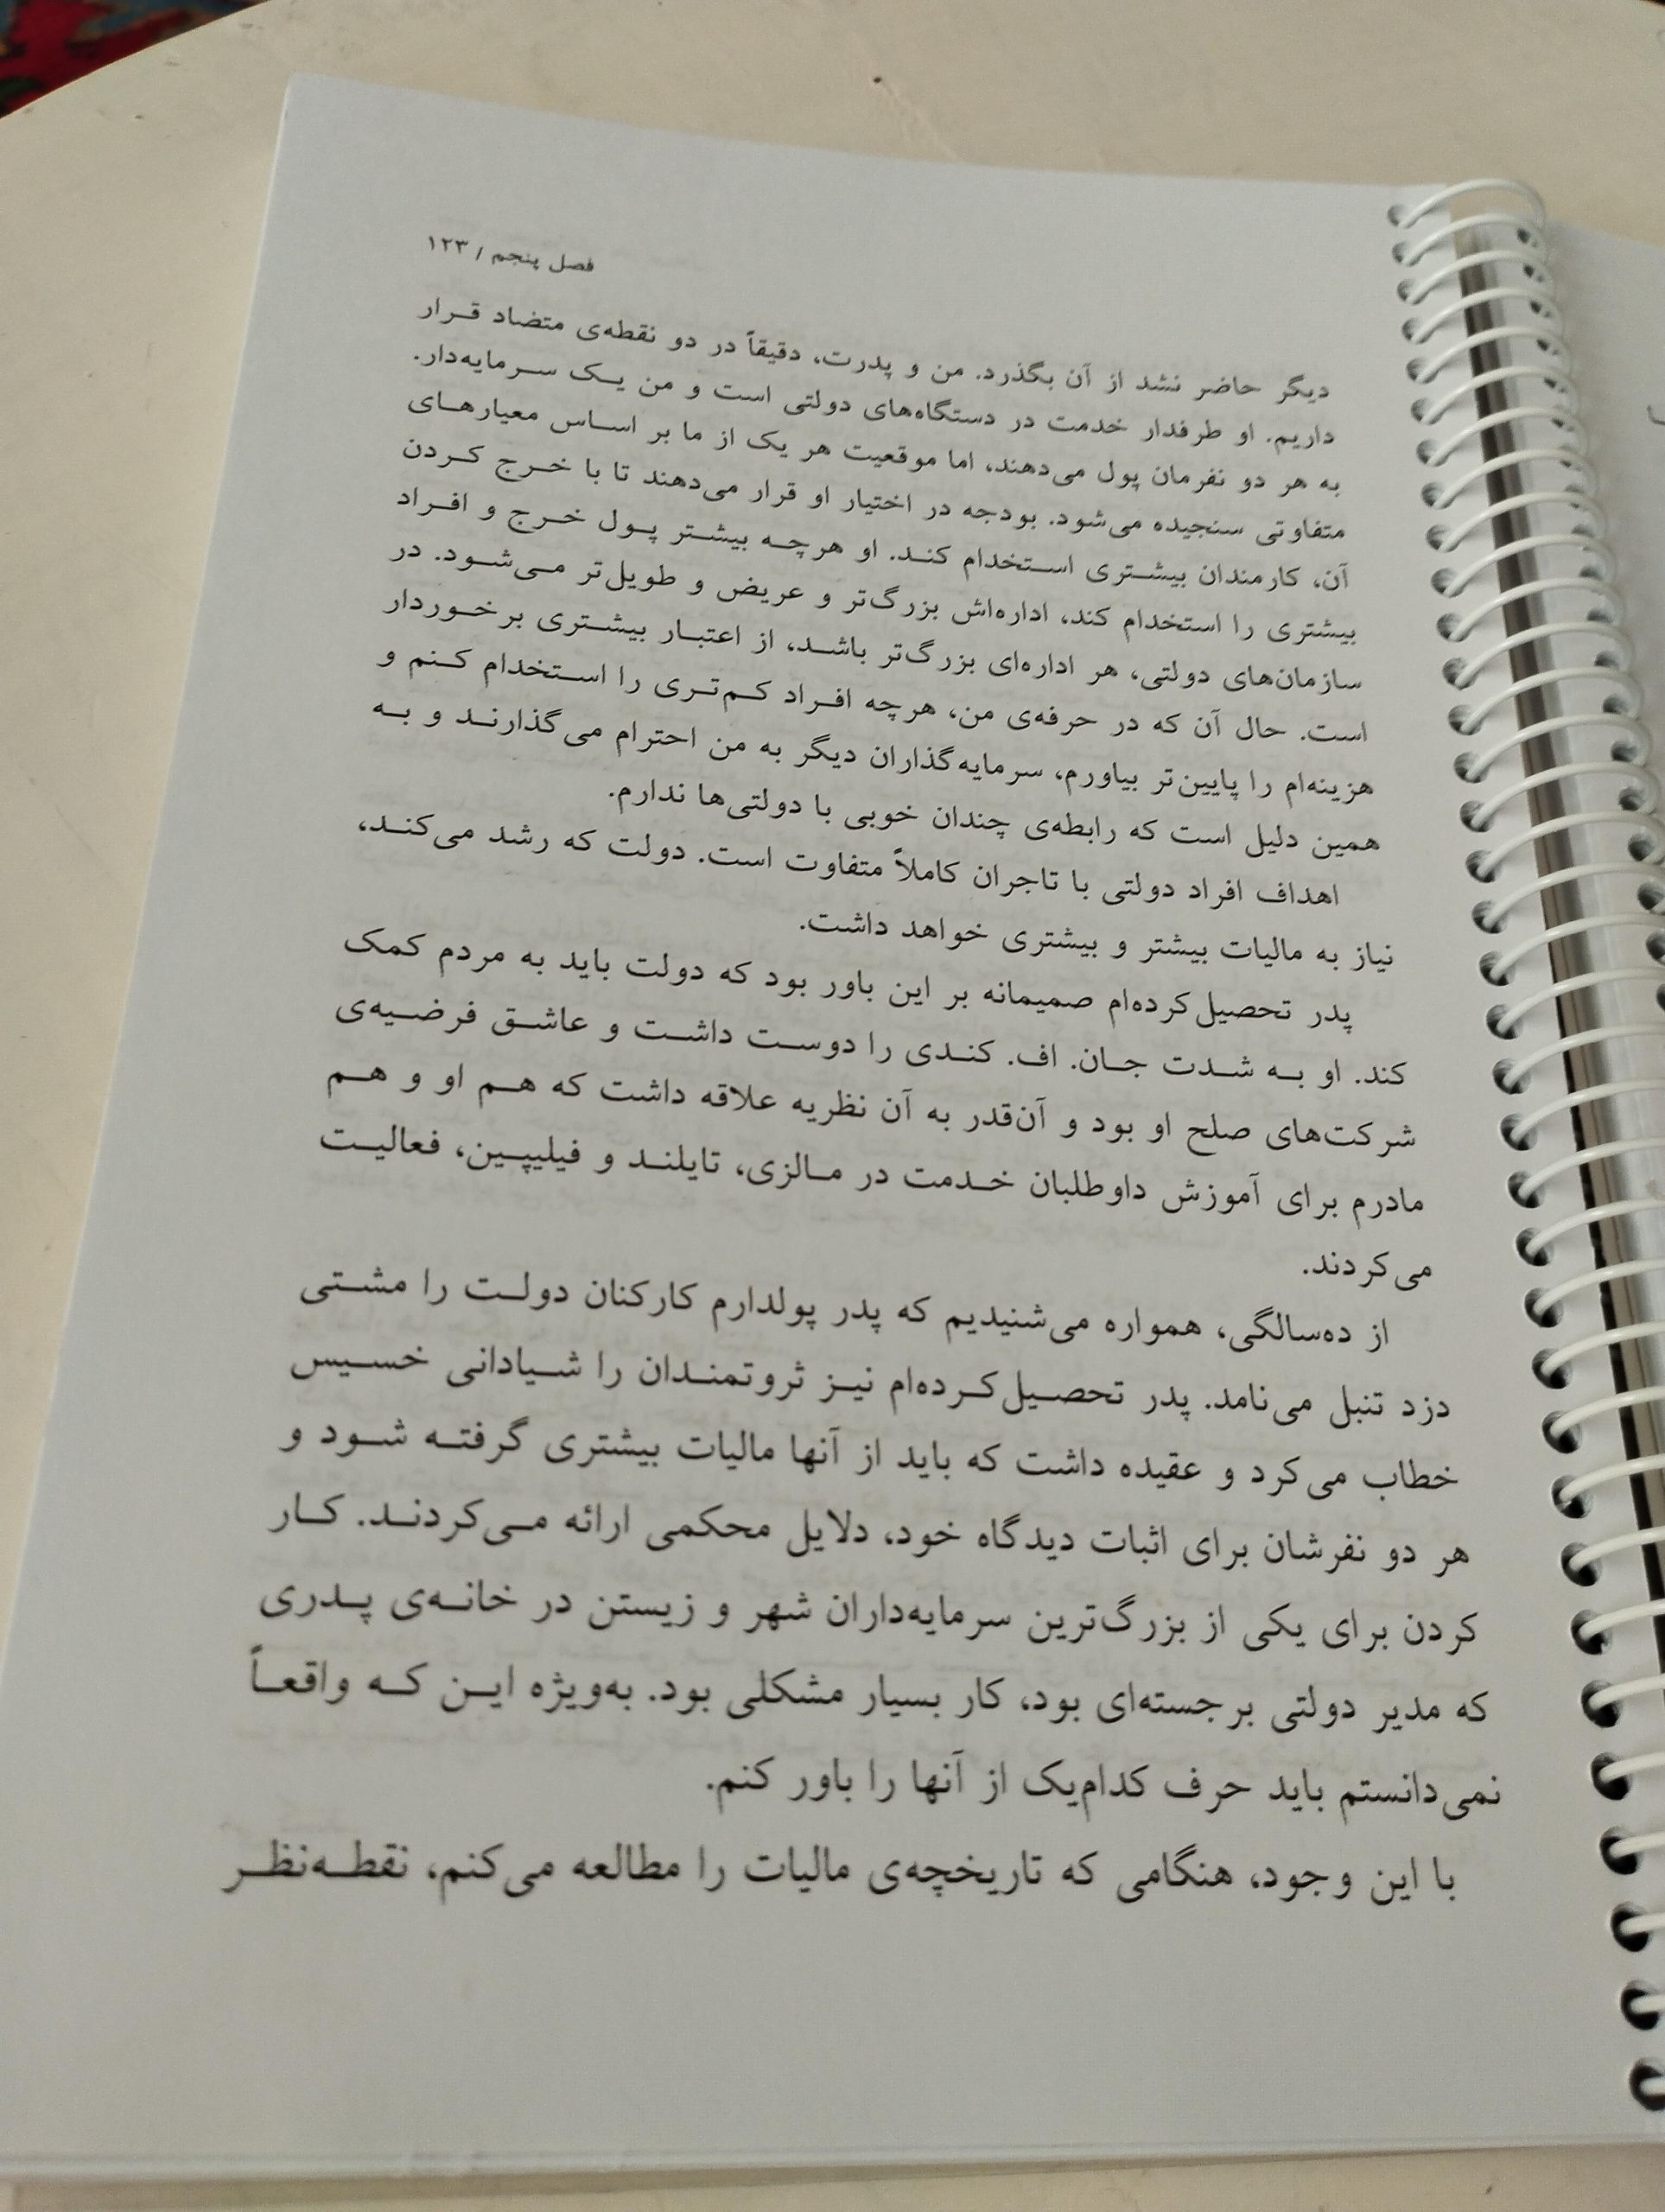 فصل پنجم / ۱۲۳
دیگر حاضر نشد از آن بگذرد. من و پدرت، دقیقاً در دو نقطه‌ی متضاد قرار
داریم. او طرفدار خدمت در دستگاه‌های دولتی است و من یک سرمایه‌دار.
به هر دو نفرمان پول می‌دهند، اما موقعیت هر یک از ما بر اساس معیارهای
متفاوتی سنجیده می‌شود. بودجه در اختیار او قرار می‌دهند تا با خرج کردن
آن، کارمندان بیشتری استخدام کند. او هرچه بیشتر پول خرج و افراد
بیشتری را استخدام کند، اداره‌اش بزرگ‌تر و عریض و طویل‌تر می‌شود. در
سازمان‌های دولتی، هر اداره‌ای بزرگ‌تر باشد، از اعتبار بیشتری برخوردار
است. حال آن که در حرفه‌ی من، هرچه افراد کم‌تری را استخدام کنم و
هزینه‌ام را پایین‌تر بیاورم، سرمایه‌گذاران دیگر به من احترام می‌گذارند و به
همین دلیل است که رابطه‌ی چندان خوبی با دولتی‌ها ندارم.
اهداف افراد دولتی با تاجران کاملاً متفاوت است. دولت که رشد می‌کند،
نیاز به مالیات بیشتر و بیشتری خواهد داشت.
پدر تحصیل‌کرده‌ام صمیمانه بر این باور بود که دولت باید به مردم کمک
کند. او به شدت جان. اف. کندی را دوست داشت و عاشق فرضیه‌ی
شرکت‌های صلح او بود و آن‌قدر به آن نظریه علاقه داشت که هم او و هم
مادرم برای آموزش داوطلبان خدمت در مالزی، تایلند و فیلیپین، فعالیت
می‌کردند.
از ده‌سالگی، همواره می‌شنیدیم که پدر پولدارم کارکنان دولت را مشتی
دزد تنبل می‌نامد. پدر تحصیل‌کرده‌ام نیز ثروتمندان را شیادانی خسیس
خطاب می‌کرد و عقیده داشت که باید از آنها مالیات بیشتری گرفته شود و
هر دو نفرشان برای اثبات دیدگاه خود، دلایل محکمی ارائه می‌کردند. کار
کردن برای یکی از بزرگ‌ترین سرمایه‌داران شهر و زیستن در خانه‌ی پدری
که مدیر دولتی برجسته‌ای بود، کار بسیار مشکلی بود. به‌ویژه این که واقعاً
نمی‌دانستم باید حرف کدام‌یک از آنها را باور کنم.
با این وجود، هنگامی که تاریخچه‌ی مالیات را مطالعه می‌کنم، نقطه‌نظر